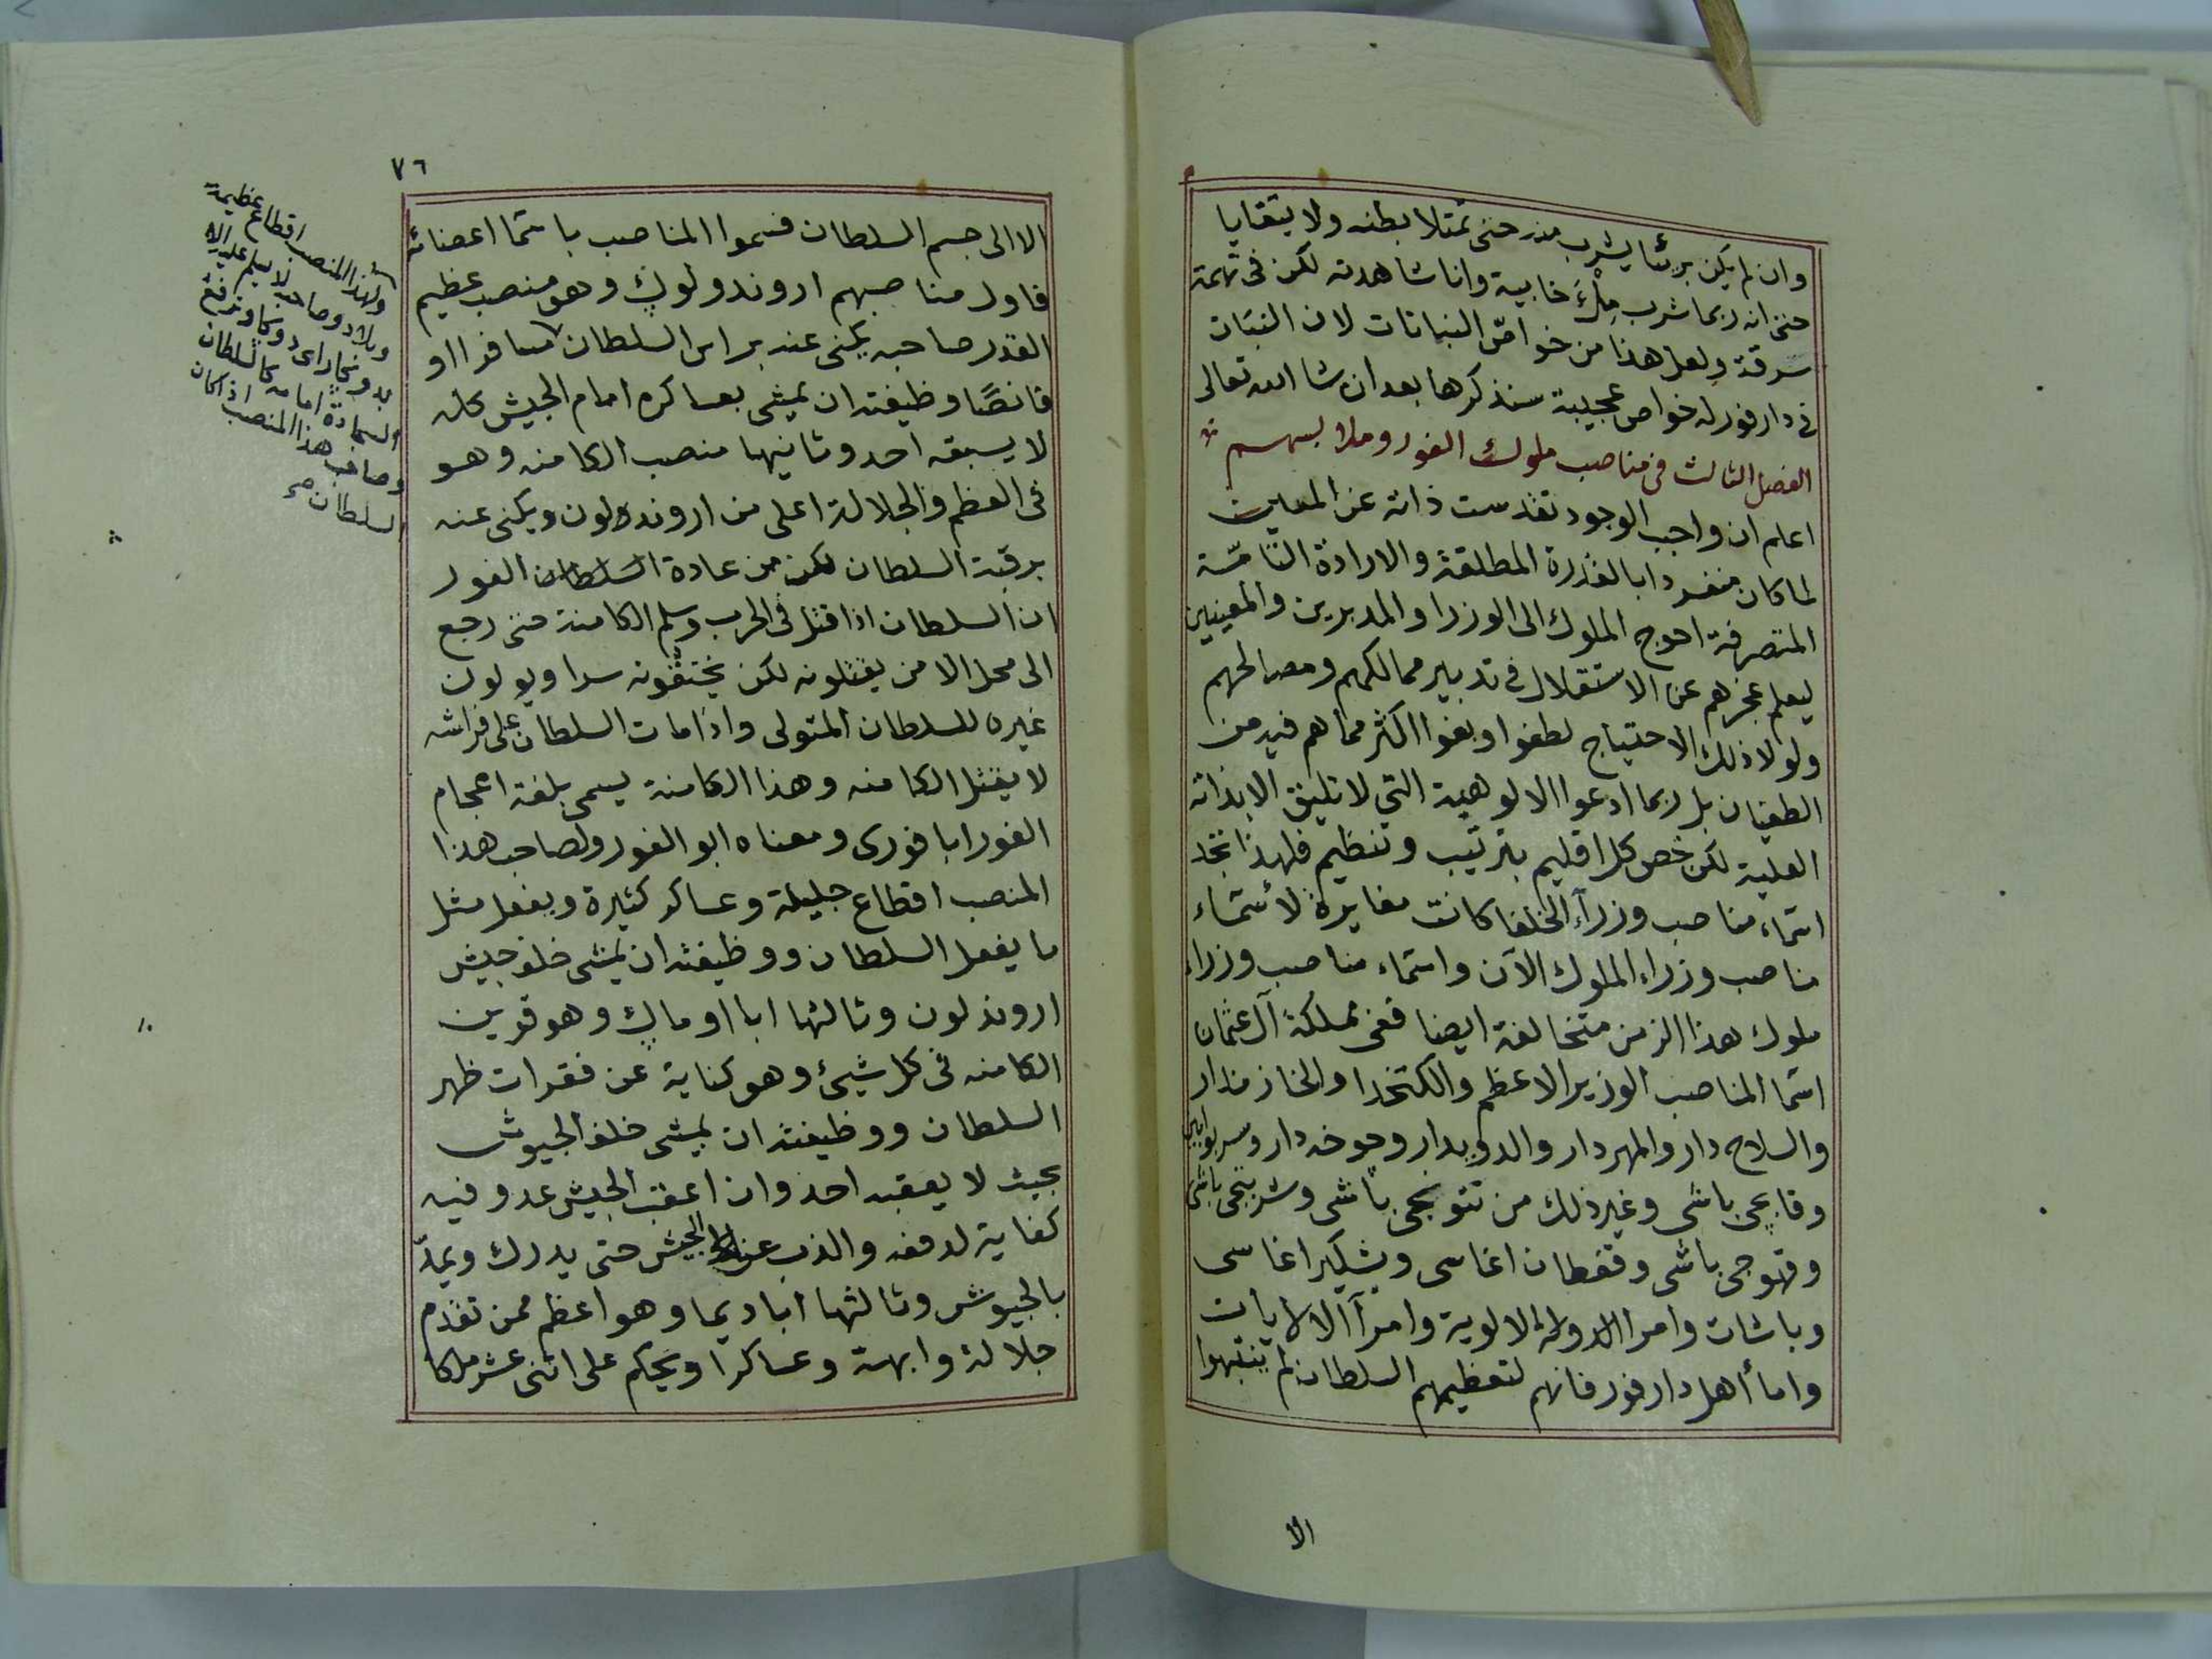 وان لم يكن بريئا يشرب منه حتى تمتلا بطنه ولا يتقايا
حتى انه ربما شرب مِلْءَ خابية وانا شاهدته لكن فى تهمة
سرقة ولعل هذا من خواصّ النباتات لان النبّات
فى دارفور له خواص عجيبة سنذكرها بعد ان شا الله تعالى
الفصل الثالث فى مناصب ملوك الفور وملابسهم
اعلم ان واجب الوجود تقدست ذاته عن المعين
لما كان منفردا بالقدرة المطلقة والارادة التامّة
المتصرفة احوج الملوك الى الوزرا والمدبرين والمعينين
ليعلم عجزهم عن الاستقلال فى تدبير ممالكهم ومصالحهم
ولولا ذلك الاحتياج لطغوا وبغوا اكثر مما هم فيه من
الطغيان بل ربما ادعوا الالوهية التى لا تليق الا بذاته
العلية لكن خص كل اقليم بترتيب وتنظيم فلهذا تجد
اسماء مناصب وزرآء الخلفا كانت مغايرة لأسماء
مناصب وزراء الملوك الآن واسماء مناصب وزراء
ملوك هذا الزمن متخالفة ايضا ففى مملكة آل عثمان
اسما المناصب الوزير الاعظم والكتخدا والخازندار
والسلاح دار والمهردار والدويدار وجوخه دار وسربوابين
وقابجى باشى وغير ذلك من تتونجى باشى وشربتجى باشى
وقهوجى باشى وقفطان اغاسى وبشكير اغاسى
وباشات وامرا الدولة الالوية وامرآ الالايات
واما أهل دارفور فانهم لتعظيمهم السلطان لم ينتبهوا
الا
٧٦
الا الى جسم السلطان فسموا المناصب باسما اعضائه
فاول مناصبهم اروندولونك وهو منصب عظيم
القدر صاحبه يكنى عنه براس السلطان مسافرا او
قانصًا وظيفته ان يمشى بعساكره امام الجيش كله
لا يسبقه احد وثانيها منصب الكامنه وهو
فى العظم والجلالة اعلى من اروندولون ويكنى عنه
برقبة السلطان لكن من عادة السلطان الفور
ان السلطان اذا قتل فى الحرب وسلم الكامنة حتى رجع
الى محل الامن يقتلونه لكن يختقونه سرا ويولون
غيره للسلطان المتولى واذا مات السلطان على فراشه
لا يقتل الكامنه وهذا الكامنة يسمى بلغة اعجام
الفور ابا فورى ومعناه ابو الفور ولصاحب هذا
المنصب اقطاع جليلة وعساكر كثيرة ويفعل مثل
ما يفعل السلطان ووظيفته ان يمشى خلف جيش
اروندلون وثالثها ابا اومانك وهو قرين
الكامنه فى كل شيئ وهو كناية عن فقرات ظهر
السلطان ووظيفته ان يمشى خلف الجيوش
بحيث لا يعقبه احد وان اعقب الجيش عدو فيه
كفاية لدفعه والذب عن الجيش حتى يدرك ويمدّ
بالجيوش وثالثها ابا ديما وهو اعظم ممن تقدم
جلالة وابهة وعساكرا ويحكم على اثنى عشر ملكا
ولهذا المنصب اقطاع عظيمة
وبلاد وصاحبه لا يسلم عليه الا
السجادة امامه كالسلطان
وصاحب هذا المنصب اذا كان
السلطان صح